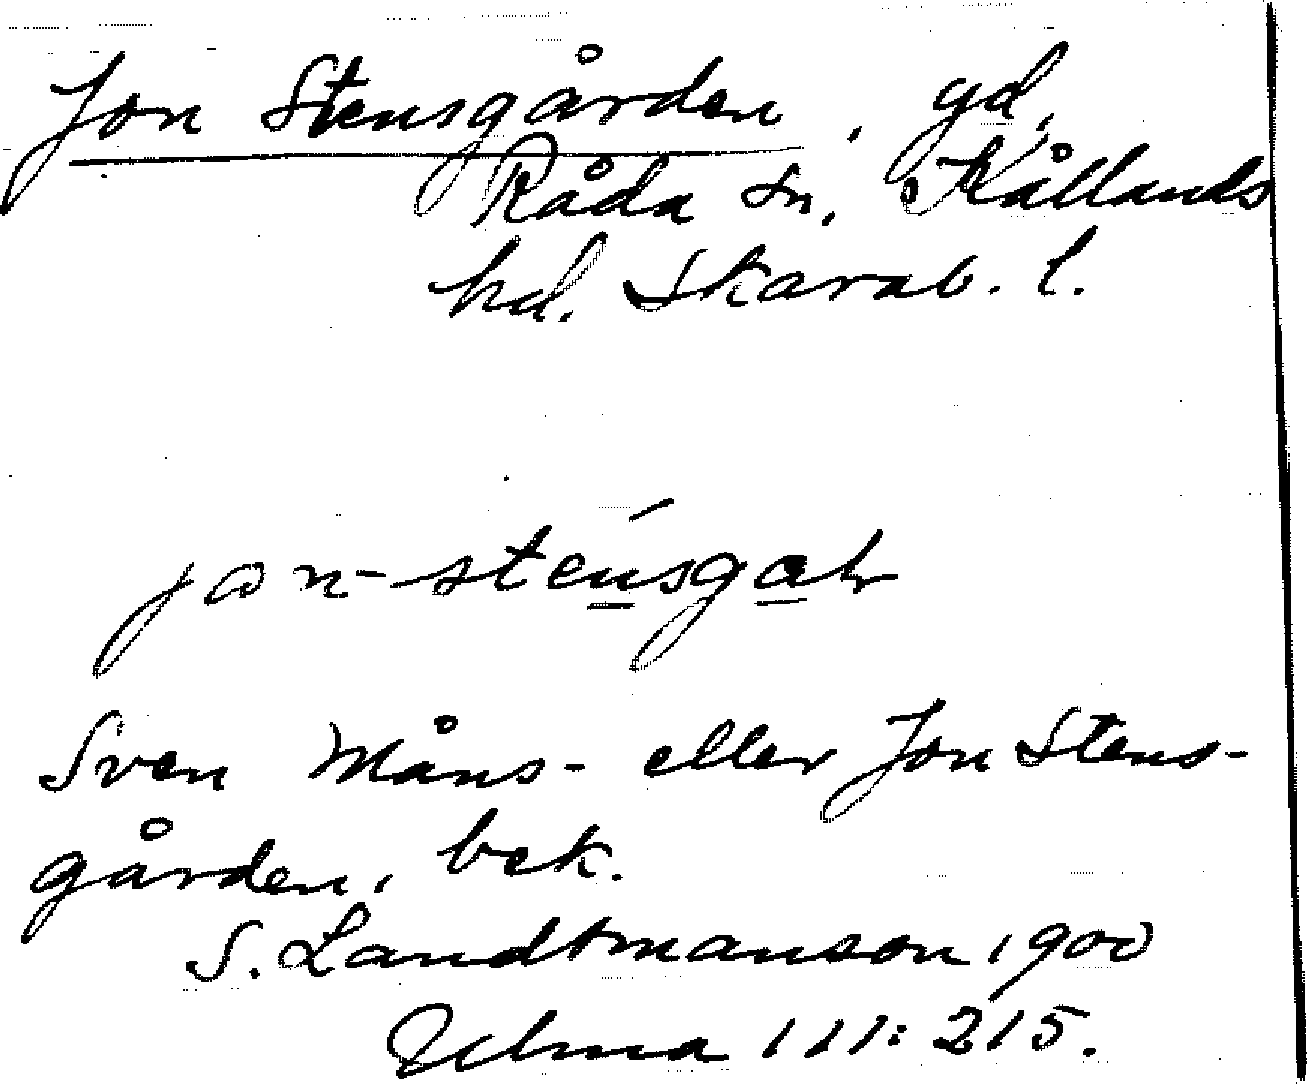 Jon Stensgården, gd,
Råda sn, Kållands
hd. Skarab. l.
jon-stensgaḷ
Sven Måns- eller Jon Stens-
gården, bek.
S. Landtmanson 1900
Ulma 111:215.